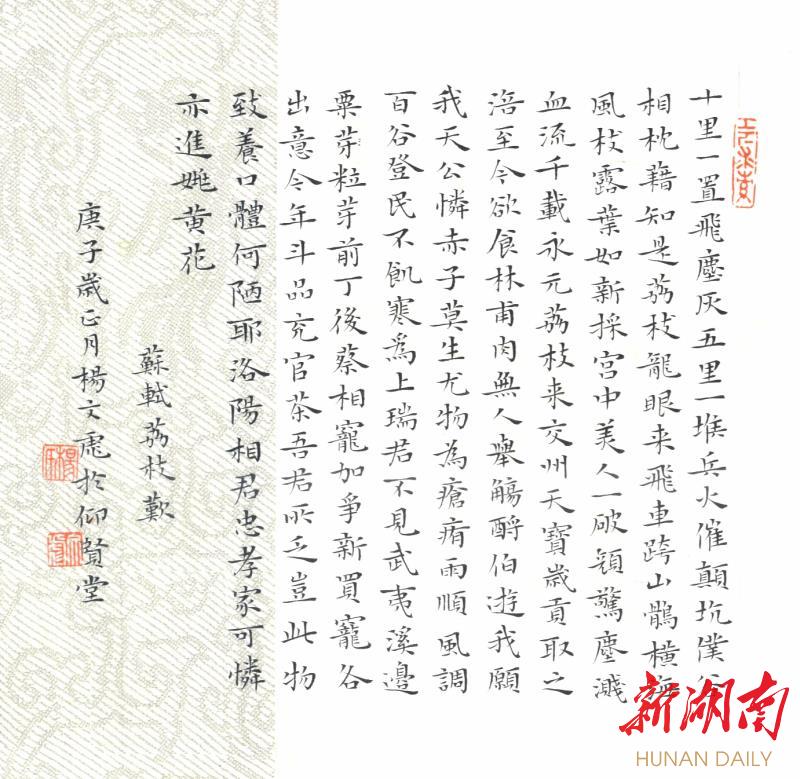 十里一置飛塵灰五里一堠兵火催顛坑僕谷
相枕藉知是荔枝龍眼来飛車跨山鶻橫海
風枝露葉如新採宮中美人一破顏驚塵濺
血流千載永元荔枝来交州天寶歲貢取之
涪至今欲食林甫肉無人舉觴酹伯游我願
我天公憐赤子莫生尤物為瘡痏雨順風調
百谷登民不飢寒爲上瑞君不見武夷溪邊
粟芽粒芽前丁後蔡相寵加爭新買寵各
出意今年斗品充官茶吾君所乏豈此物
致養口體何陋耶洛陽相君忠孝家可憐
亦進姚黃花
蘇軾荔枝歎
庚子歲正月楊文虎於仰賢堂
新湖南
HUNAN DAILY